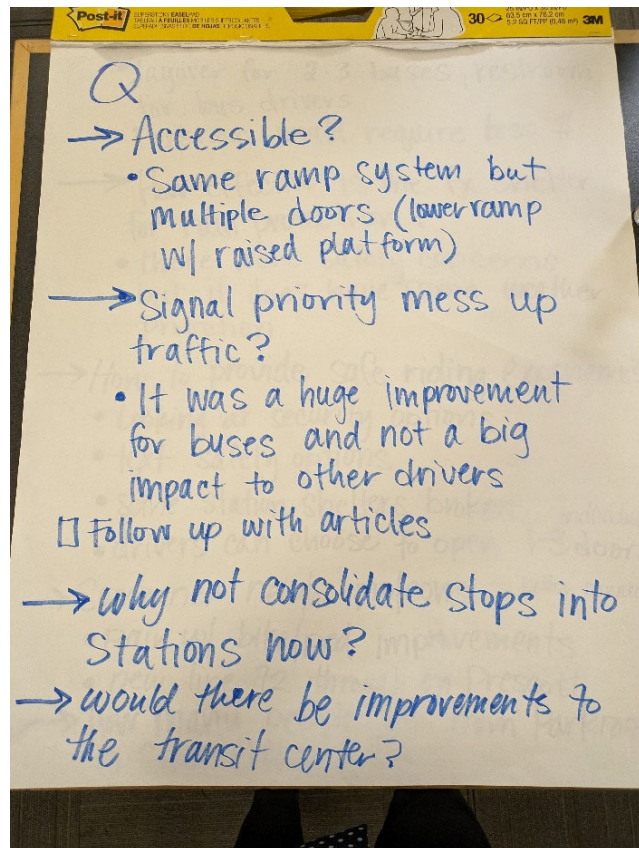 Post-it
30
3M
Q
→ Accessible?
• Same ramp system but
multiple doors (lower ramp
w/ raised platform)
→ Signal priority mess up
traffic?
• It was a huge improvement
for buses and not a big
impact to other drivers
☐ Follow up with articles
→ why not consolidate stops into
stations now?
→ would there be improvements to
the transit center?